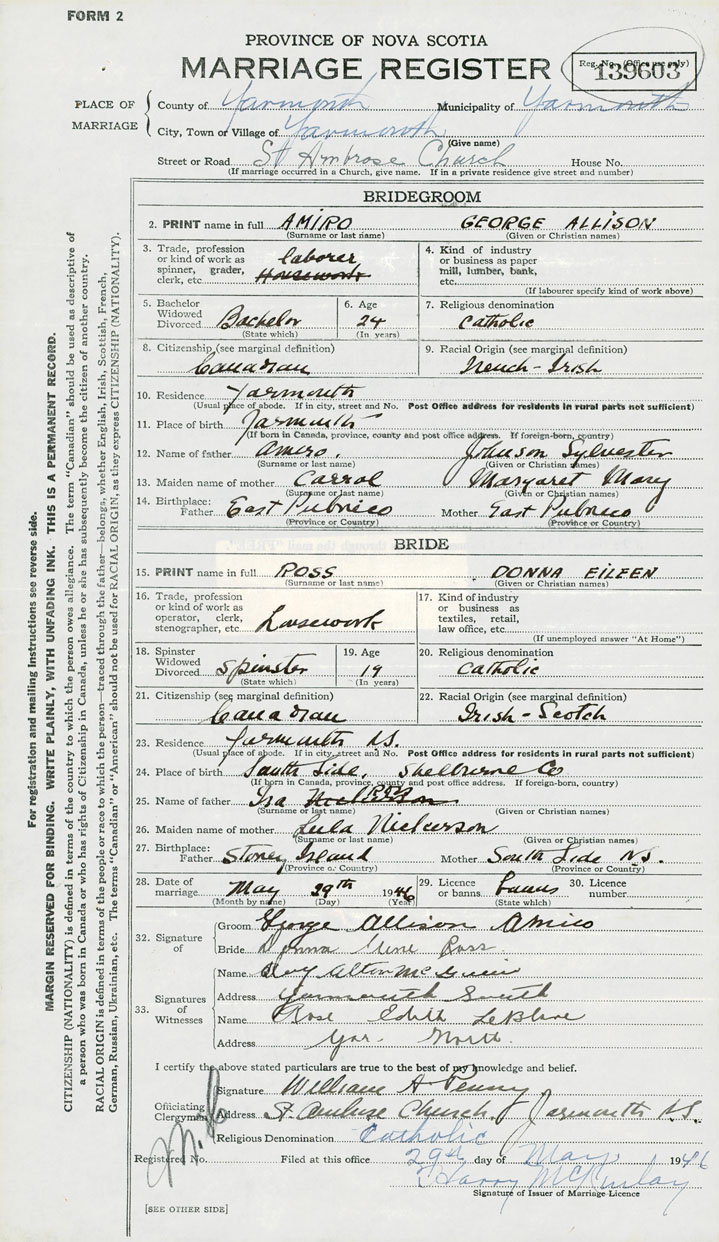 FORM 2
PROVINCE OF NOVA SCOTIA
MARRIAGE REGISTER
Reg. No. (Office use only)
139603
PLACE OF MARRIAGE
County of Yarmouth Municipality of Yarmouth
City, Town or Village of Yarmouth
(Give name)
Street or Road St Ambrose Church House No.
(If marriage occurred in a Church, give name. If in a private residence give street and number)
BRIDEGROOM
2. PRINT name in full AMIRO GEORGE ALLISON
(Surname or last name) (Given or Christian names)
3. Trade, profession or kind of work as spinner, grader, clerk, etc. laborer Housework
4. Kind of industry or business as paper mill, lumber, bank, etc.
(If labourer specify kind of work above)
5. Bachelor Widowed Divorced Bachelor
(State which)
6. Age 24
(In years)
7. Religious denomination
Catholic
8. Citizenship (see marginal definition)
Canadian
9. Racial Origin (see marginal definition)
French-Irish
10. Residence Yarmouth
(Usual place of abode. If in city, street and No. Post Office address for residents in rural parts not sufficient)
11. Place of birth Yarmouth
(If born in Canada, province, county and post office address. If foreign-born, country)
12. Name of father Amiro. Johnson Sylvester
(Surname or last name) (Given or Christian names)
13. Maiden name of mother Carrol Margaret Mary
(Surname or last name) (Given or Christian names)
14. Birthplace: Father East Pubnico Mother East Pubnico
(Province or Country) (Province or Country)
BRIDE
15. PRINT name in full ROSS DONNA EILEEN
(Surname or last name) (Given or Christian names)
16. Trade, profession or kind of work as operator, clerk, stenographer, etc. housework
17. Kind of industry or business as textiles, retail, law office, etc.
(If unemployed answer "At Home")
18. Spinster Widowed Divorced Spinster
(State which)
19. Age 19
(In years)
20. Religious denomination
Catholic
21. Citizenship (see marginal definition)
Canadian
22. Racial Origin (see marginal definition)
Irish-Scotch
23. Residence Yarmouth N.S.
(Usual place of abode. If in city, street and No. Post Office address for residents in rural parts not sufficient)
24. Place of birth South Side, Shelburne Co
(If born in Canada, province, county and post office address. If foreign-born, country)
25. Name of father Ira Nickerson Ross
(Surname or last name) (Given or Christian names)
26. Maiden name of mother Lula Nickerson
(Surname or last name) (Given or Christian names)
27. Birthplace: Father Stoney Island Mother South Side N.S.
(Province or Country) (Province or Country)
28. Date of marriage May 29th 1946
(Month by name) (Day) (Year)
29. Licence or banns banns
(State which)
30. Licence number
32. Signature of
Groom George Allison Amiro
Bride Donna Ross
33. Signatures of Witnesses
Name Alton
Address Yarmouth South
Name Rose Edith LeBlanc
Address Yar. North.
I certify the above stated particulars are true to the best of my knowledge and belief.
Officiating Clergyman
Signature William A Penny
Address St. Ambrose Church, Yarmouth N.S.
Religious Denomination Catholic
Registered No. Filed at this office 29th day of May, 1946
Harry McKinlay
Signature of Issuer of Marriage Licence
[SEE OTHER SIDE]
For registration and mailing instructions see reverse side.
MARGIN RESERVED FOR BINDING. WRITE PLAINLY, WITH UNFADING INK. THIS IS A PERMANENT RECORD.
CITIZENSHIP (NATIONALITY) is defined in terms of the country to which the person owes allegiance. The term "Canadian" should be used as descriptive of
a person who was born in Canada or who has rights of Citizenship in Canada, unless he or she has subsequently become the citizen of another country.
RACIAL ORIGIN is defined in terms of the people or race to which the person—traced through the father—belongs, whether English, Irish, Scottish, French,
German, Russian, Ukrainian, etc. The terms "Canadian" or "American" should not be used for RACIAL ORIGIN, as they express CITIZENSHIP (NATIONALITY).